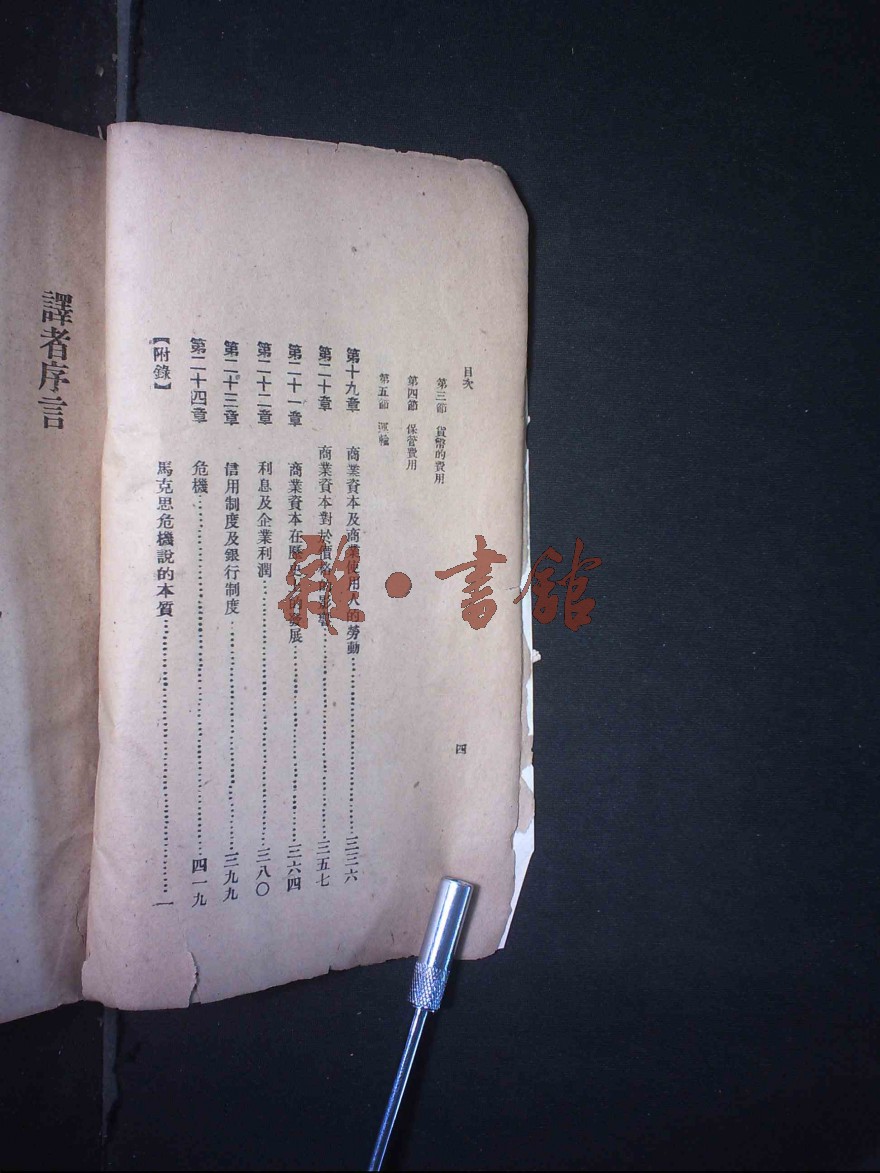 目次
四
第三節 貨幣的費用
第四節 保管費用
第五節 運輸
第十九章 商業資本及商業使用人的勞動……三三六
第二十章 商業資本對於價格的影響……三五七
第二十一章 商業資本在歷史上的發展……三六四
第二十二章 利息及企業利潤……三八〇
第二十三章 信用制度及銀行制度……三九九
第二十四章 危機……四一九
【附錄】 馬克思危機說的本質……一
譯者序言
雜·書館